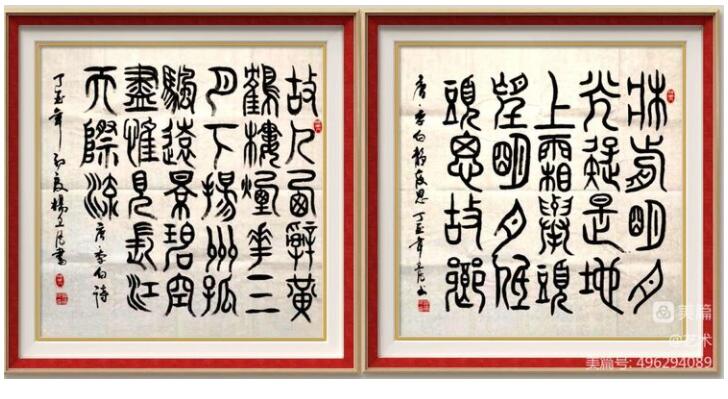 故人西辭黃
鶴樓煙花三
月下揚州孤
颿遠景碧空
盡惟見長江
天際流
唐李白詩
年初夏楊書
牀前明月
光疑是地
上霜舉頭
望明月低
頭思故鄉
唐李白靜夜思
年書
美篇
@艺术
美篇号: 496294089